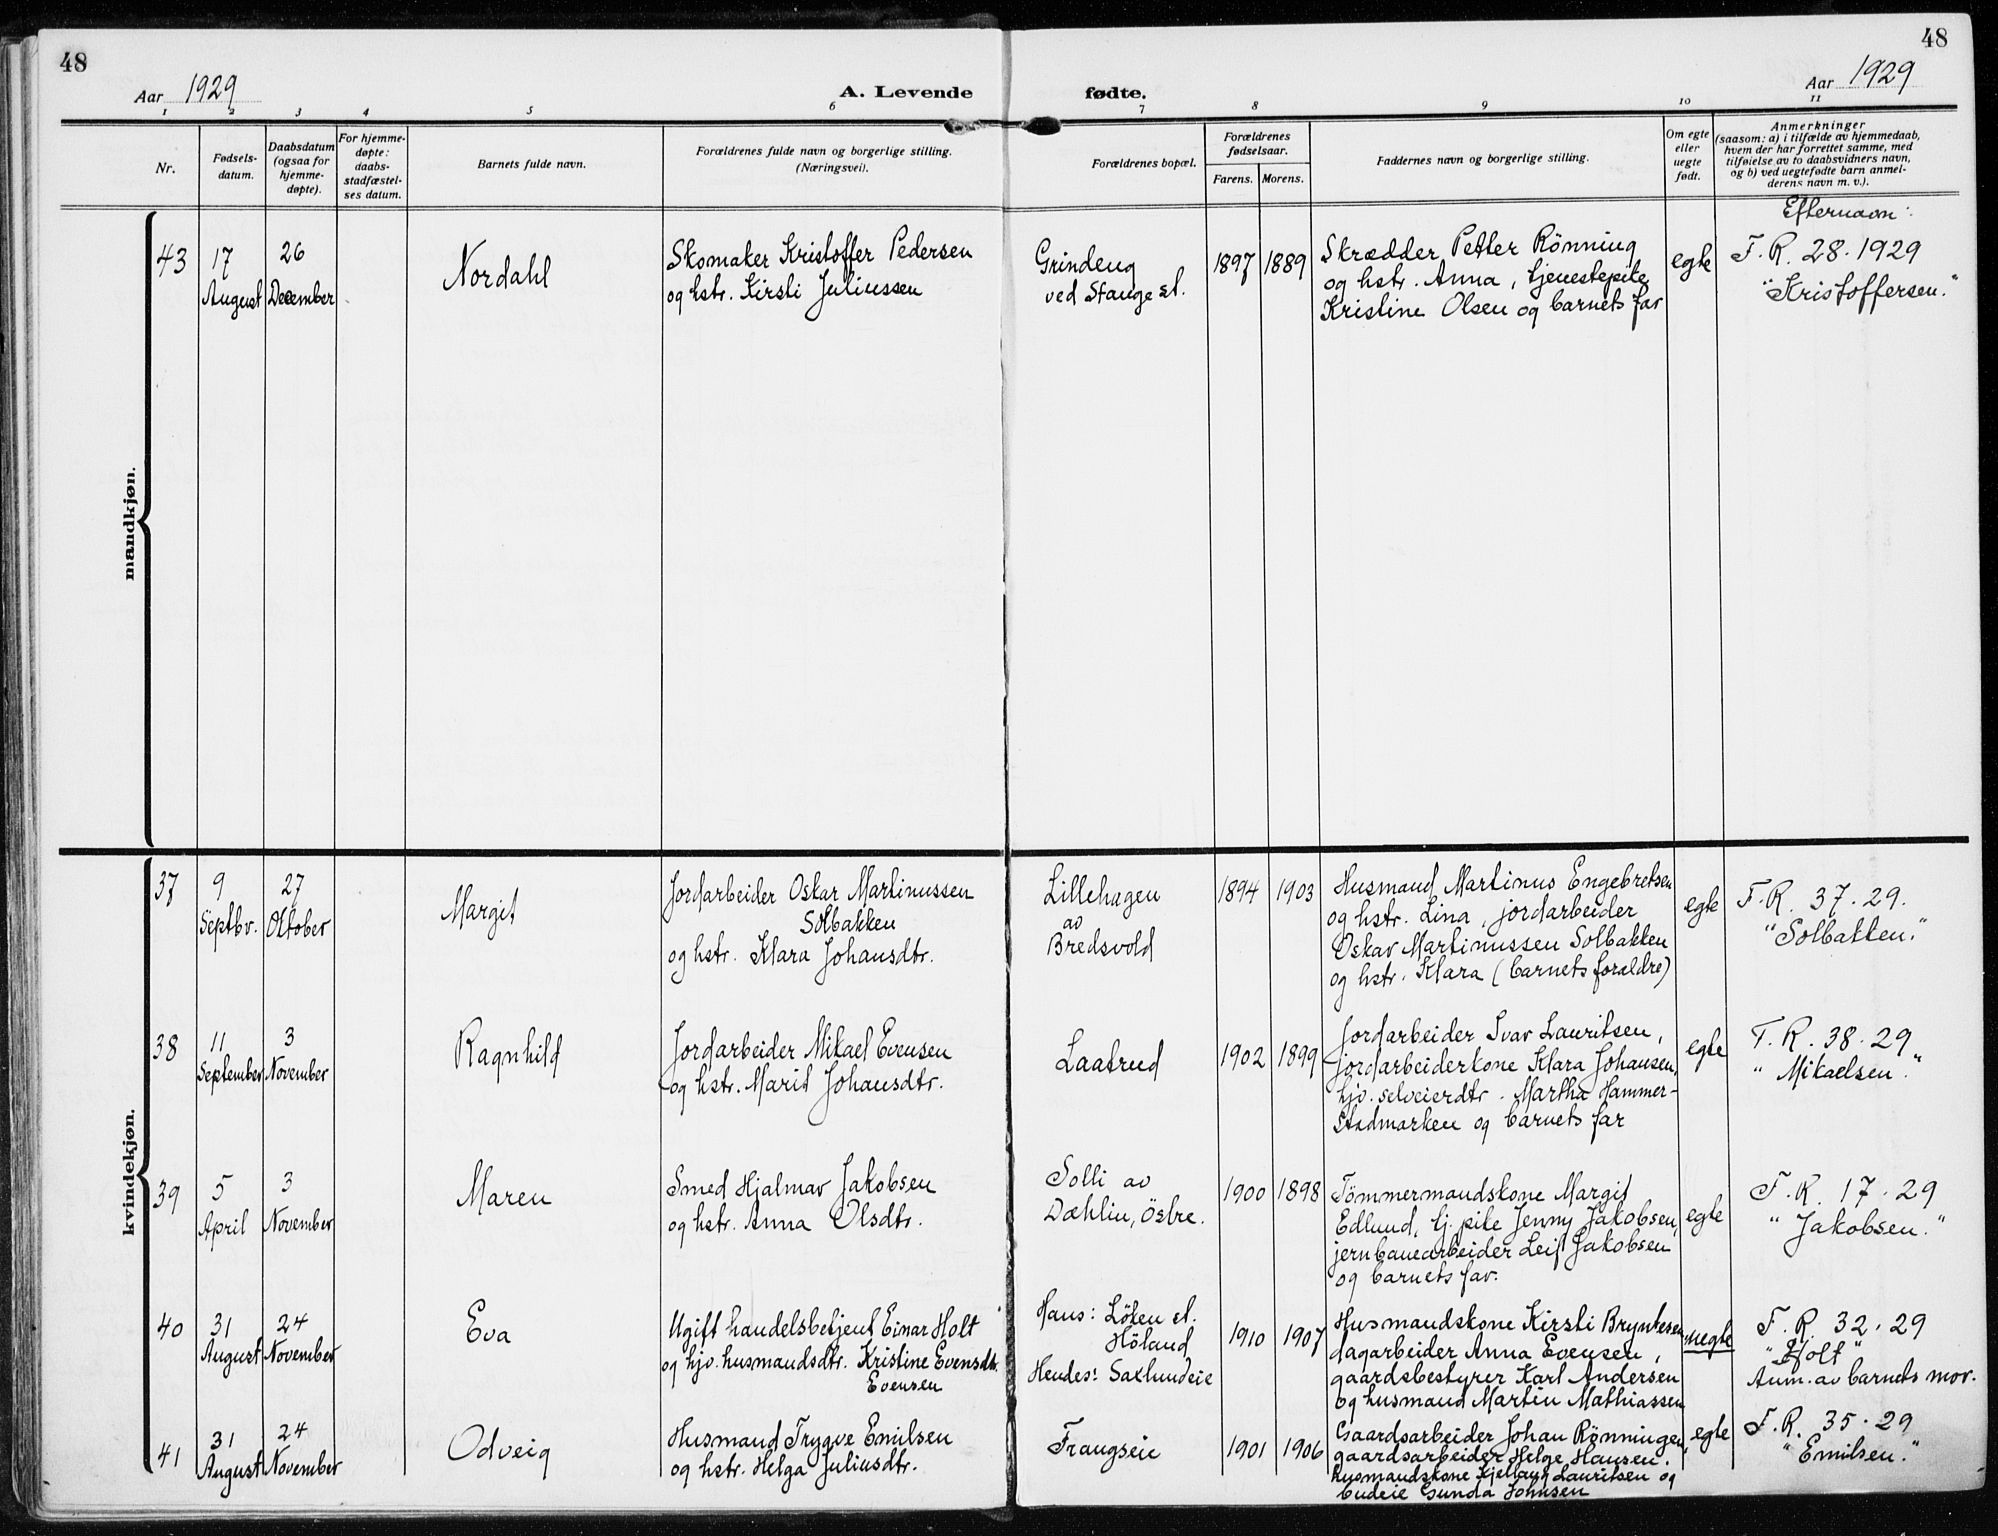 48
48
Aar 1929
A. Levende fødte.
Aar 1929
1 2 3 4 5 6 7 8 9 10 11
Nr.
Fødsels-
datum.
Daabsdatum
(ogsaa for
hjemme-
døpte).
For hjemme-
døpte:
daabs-
stadfæstel-
ses datum.
Barnets fulde navn.
Forældrenes fulde navn og borgerlige stilling.
(Næringsvei).
Forældrenes bopæl.
Forældrenes
fødselsaar.
Farens. Morens.
Faddernes navn og borgerlige stilling.
Om egte
eller
uegte
født.
Anmerkninger
(saasom: a) i tilfælde av hjemmedaab,
hvem der har forrettet samme, med
tilføielse av to daabsvidners navn,
og b) ved uegtefødte barn anmel-
derens navn m. v.).
mandkjøn.
43
17
August
26
December
Nordahl
Skomaker Kristoffer Pedersen
og hstr. Kirsti Juliussen
Grindeng
ved Stange st.
1897 1889
Skrædder Petter Rönning
og hstr. Anna, tjenestepike
Kristine Olsen og barnets far
egte
Efternavn:
F. R. 28. 1929
"Kristoffersen."
kvindekjøn.
37
9
Septbr.
27
Oktober
Margit
Jordarbeider Oskar Martinussen
Solbakken
og hstr. Klara Johansdtr.
Lillehagen
av
Bredsvold
1894 1903
Husmand Martinus Engebretsen
og hstr. Lina, jordarbeider
Oskar Martinussen Solbakken
og hstr. Klara (barnets forældre)
egte
F. R. 37. 29.
"Solbakken."
38
11
September
3
November
Ragnhild
Jordarbeider Mikael Evensen
og hstr. Marit Johansdtr.
Laatrud
1902 1899
Jordarbeider Ivar Lauritsen,
jordarbeiderkone Klara Johansen,
hjv. selveierdtr. Martha Hammer-
stadmarken og barnets far
egte
F. R. 38. 29
"Mikaelsen."
39
5
April
3
November
Maren
Smed Hjalmar Jakobsen
og hstr. Anna Olsdtr.
Solli av
Dæhlin, Östre.
1900 1898
Tömmermandskone Margit
Edlund, tj. pike Jenny Jakobsen,
jernbanearbeider Leif Jakobsen
og barnets far.
egte
F. R. 17. 29
"Jakobsen."
40
31
August
24
November
Eva
Ugift handelsbetjent Einar Holt
og hjv. husmandsdtr. Kristine Evensdtr.
Evensen
Hans: Löken st.
Höland
Hendes: Saxlundeie
1910 1907
Husmandskone Kirsti Bryntesen,
dagarbeider Anna Evensen,
gaardsbestyrer Karl Andersen
og husmand Martin Mathiassen
uegte
F. R. 32. 29
"Holt"
Anm. av barnets mor.
41
31
August
24
November
Odveig
Husmand Trygve Emilsen
og hstr. Helga Juliusdtr.
Frangseie
1901 1906
Gaardsarbeider Johan Rönningen,
gaardsarbeider Helge Hansen.
husmandskone Kjellaug Lauritsen og
budeie Gunda Johnsen
egte
F. R. 35. 29
"Emilsen."